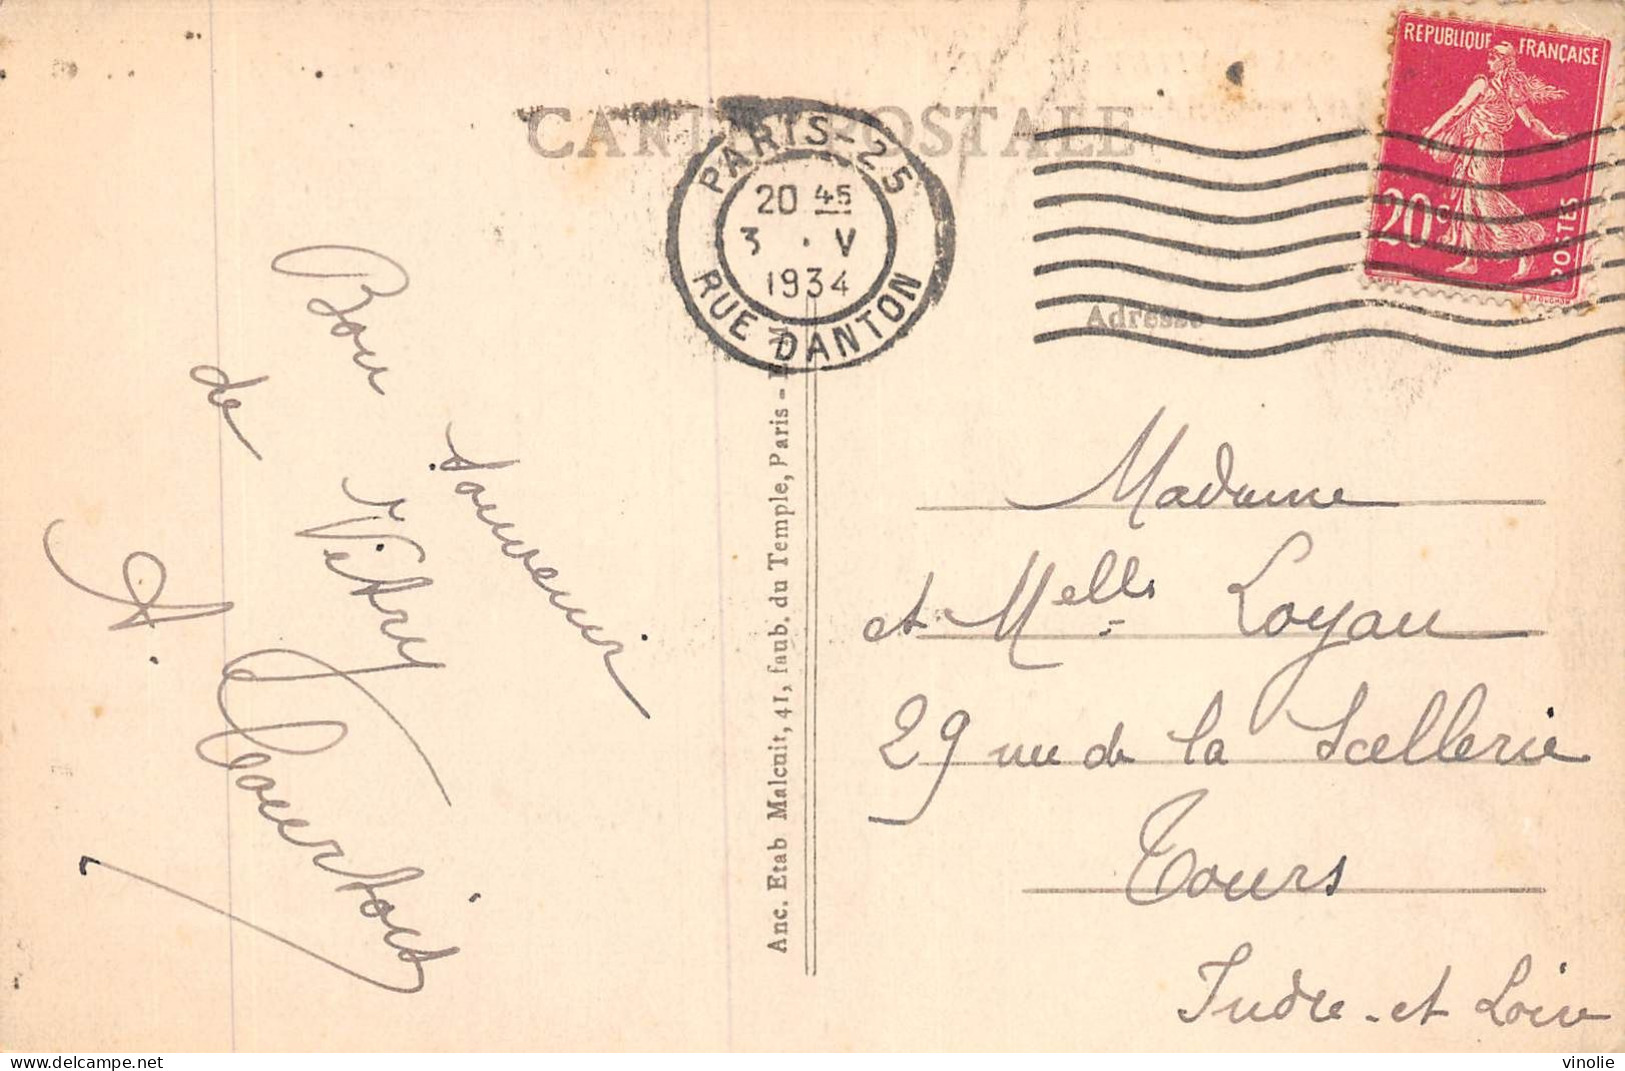 CARTE POSTALE
PARIS-25
20 45
3 . V
1934
RUE DANTON
REPUBLIQUE FRANÇAISE
20c
POSTES
Adresse
Bon souvenir
de Vitry
A. Courtois
Anc. Etab Malcuit, 41, faub. du Temple, Paris -
Madame
et Melle Loyau
29 rue de la Scellerie
Tours
Indre-et Loire
vinolie